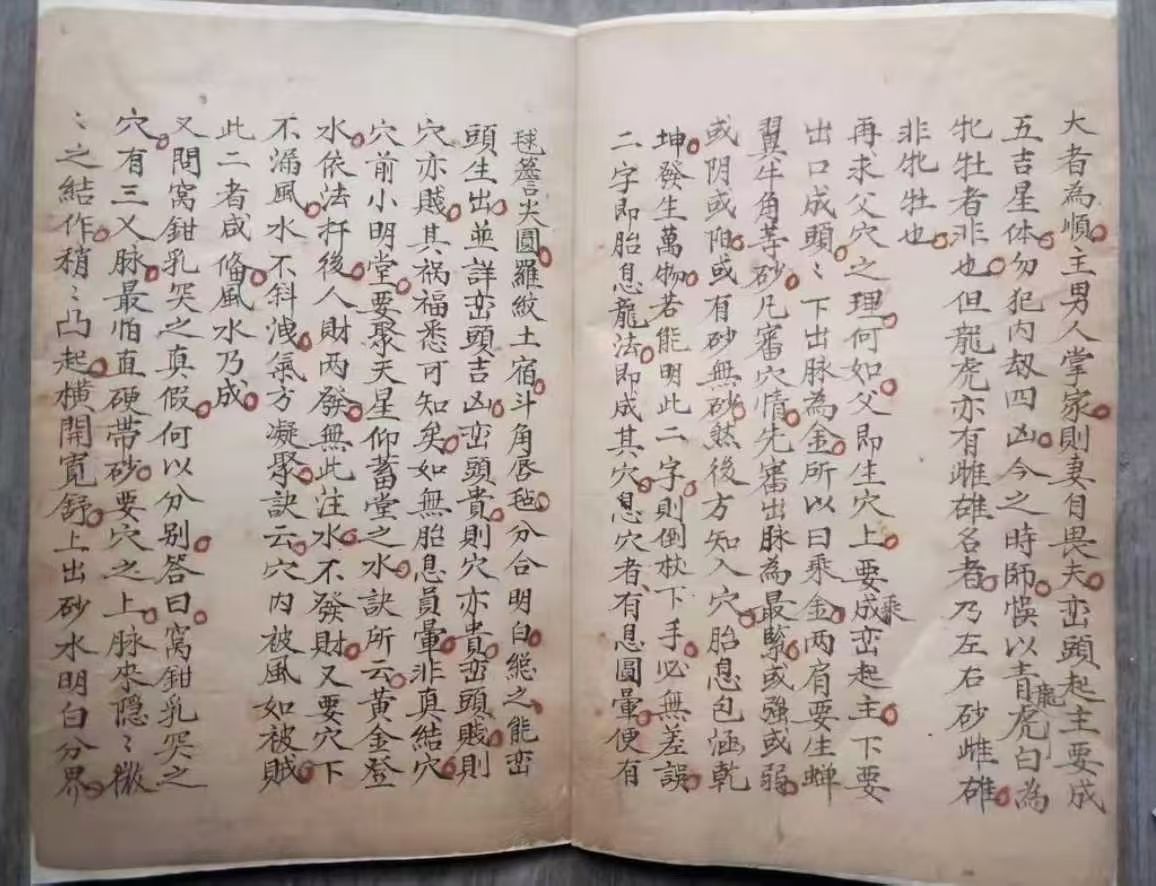 大者為順王男人掌家則妻自畏夫峦頭起主要成
五吉星体勿犯内刼四凶今之時師悞以青龍虎白為
牝牡者非也但龍虎亦有雌雄名者乃左右砂雌雄
非牝牡也
再求父穴之理何如父即生穴上要成乘峦起主下要
出口成頭〻下出脉為金所以曰乘金两肩要生蝉
翼牛角等砂凡審穴情先審出脉為最緊或強或弱
或阴或阳或有砂無砂然後方知入穴胎息包涵乾
坤發生萬物若能明此二字則倒杖下手必無差誤
二字即胎息龍法即成其穴息穴者有息圓暈便有
毬簷尖圓羅紋土宿斗角唇毡分合明白總之能峦
頭生出並詳峦頭吉凶峦頭貴則穴亦貴峦頭賤則
穴亦賤其祸福悉可知矣如無胎息員暈非真結穴
穴前小明堂要聚天星仰蓄堂之水訣所云黄金登
水依法扦後人財两發無此注水不發財又要穴下
不漏風水不斜洩氣方凝聚訣云穴内被風如被賊
此二者咸俻風水乃成
又問窝鉗乳突之真假何以分别答曰窝鉗乳突之
穴有三义脉最怕直硬带砂要穴之上脉来隠〻微
〻之結作稍〻凸起横開寬舒上出砂水明白分界